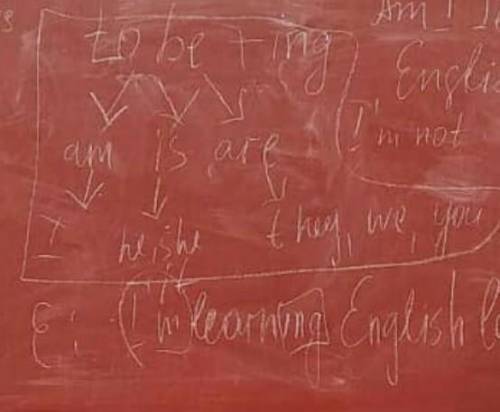 Am I
to be + ing
Engli
I'm not
am is are
I he, she they, we, you
it
E: (I'm) learning English